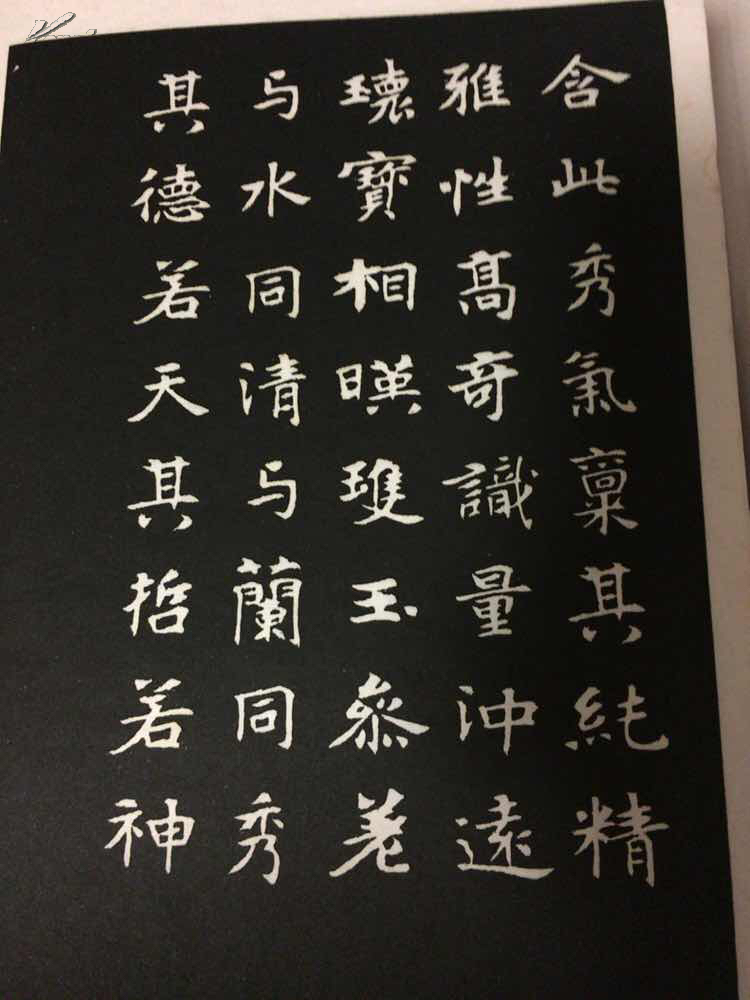 含此秀氣稟其純精
雅性高奇識量沖遠
瓌寶相暎雙玉叅差
与水同清与蘭同秀
其德若天其哲若神